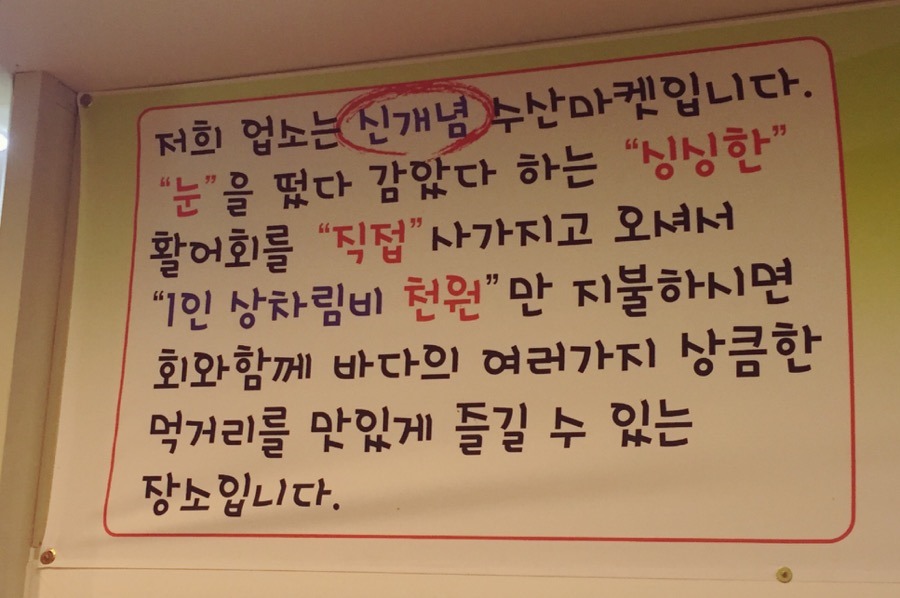 저희 업소는 신개념 수산마켓입니다.
“눈”을 떴다 감았다 하는 “싱싱한”
활어회를 “직접” 사가지고 오셔서
“1인 상차림비 천원”만 지불하시면
회와함께 바다의 여러가지 상큼한
먹거리를 맛있게 즐길 수 있는
장소입니다.